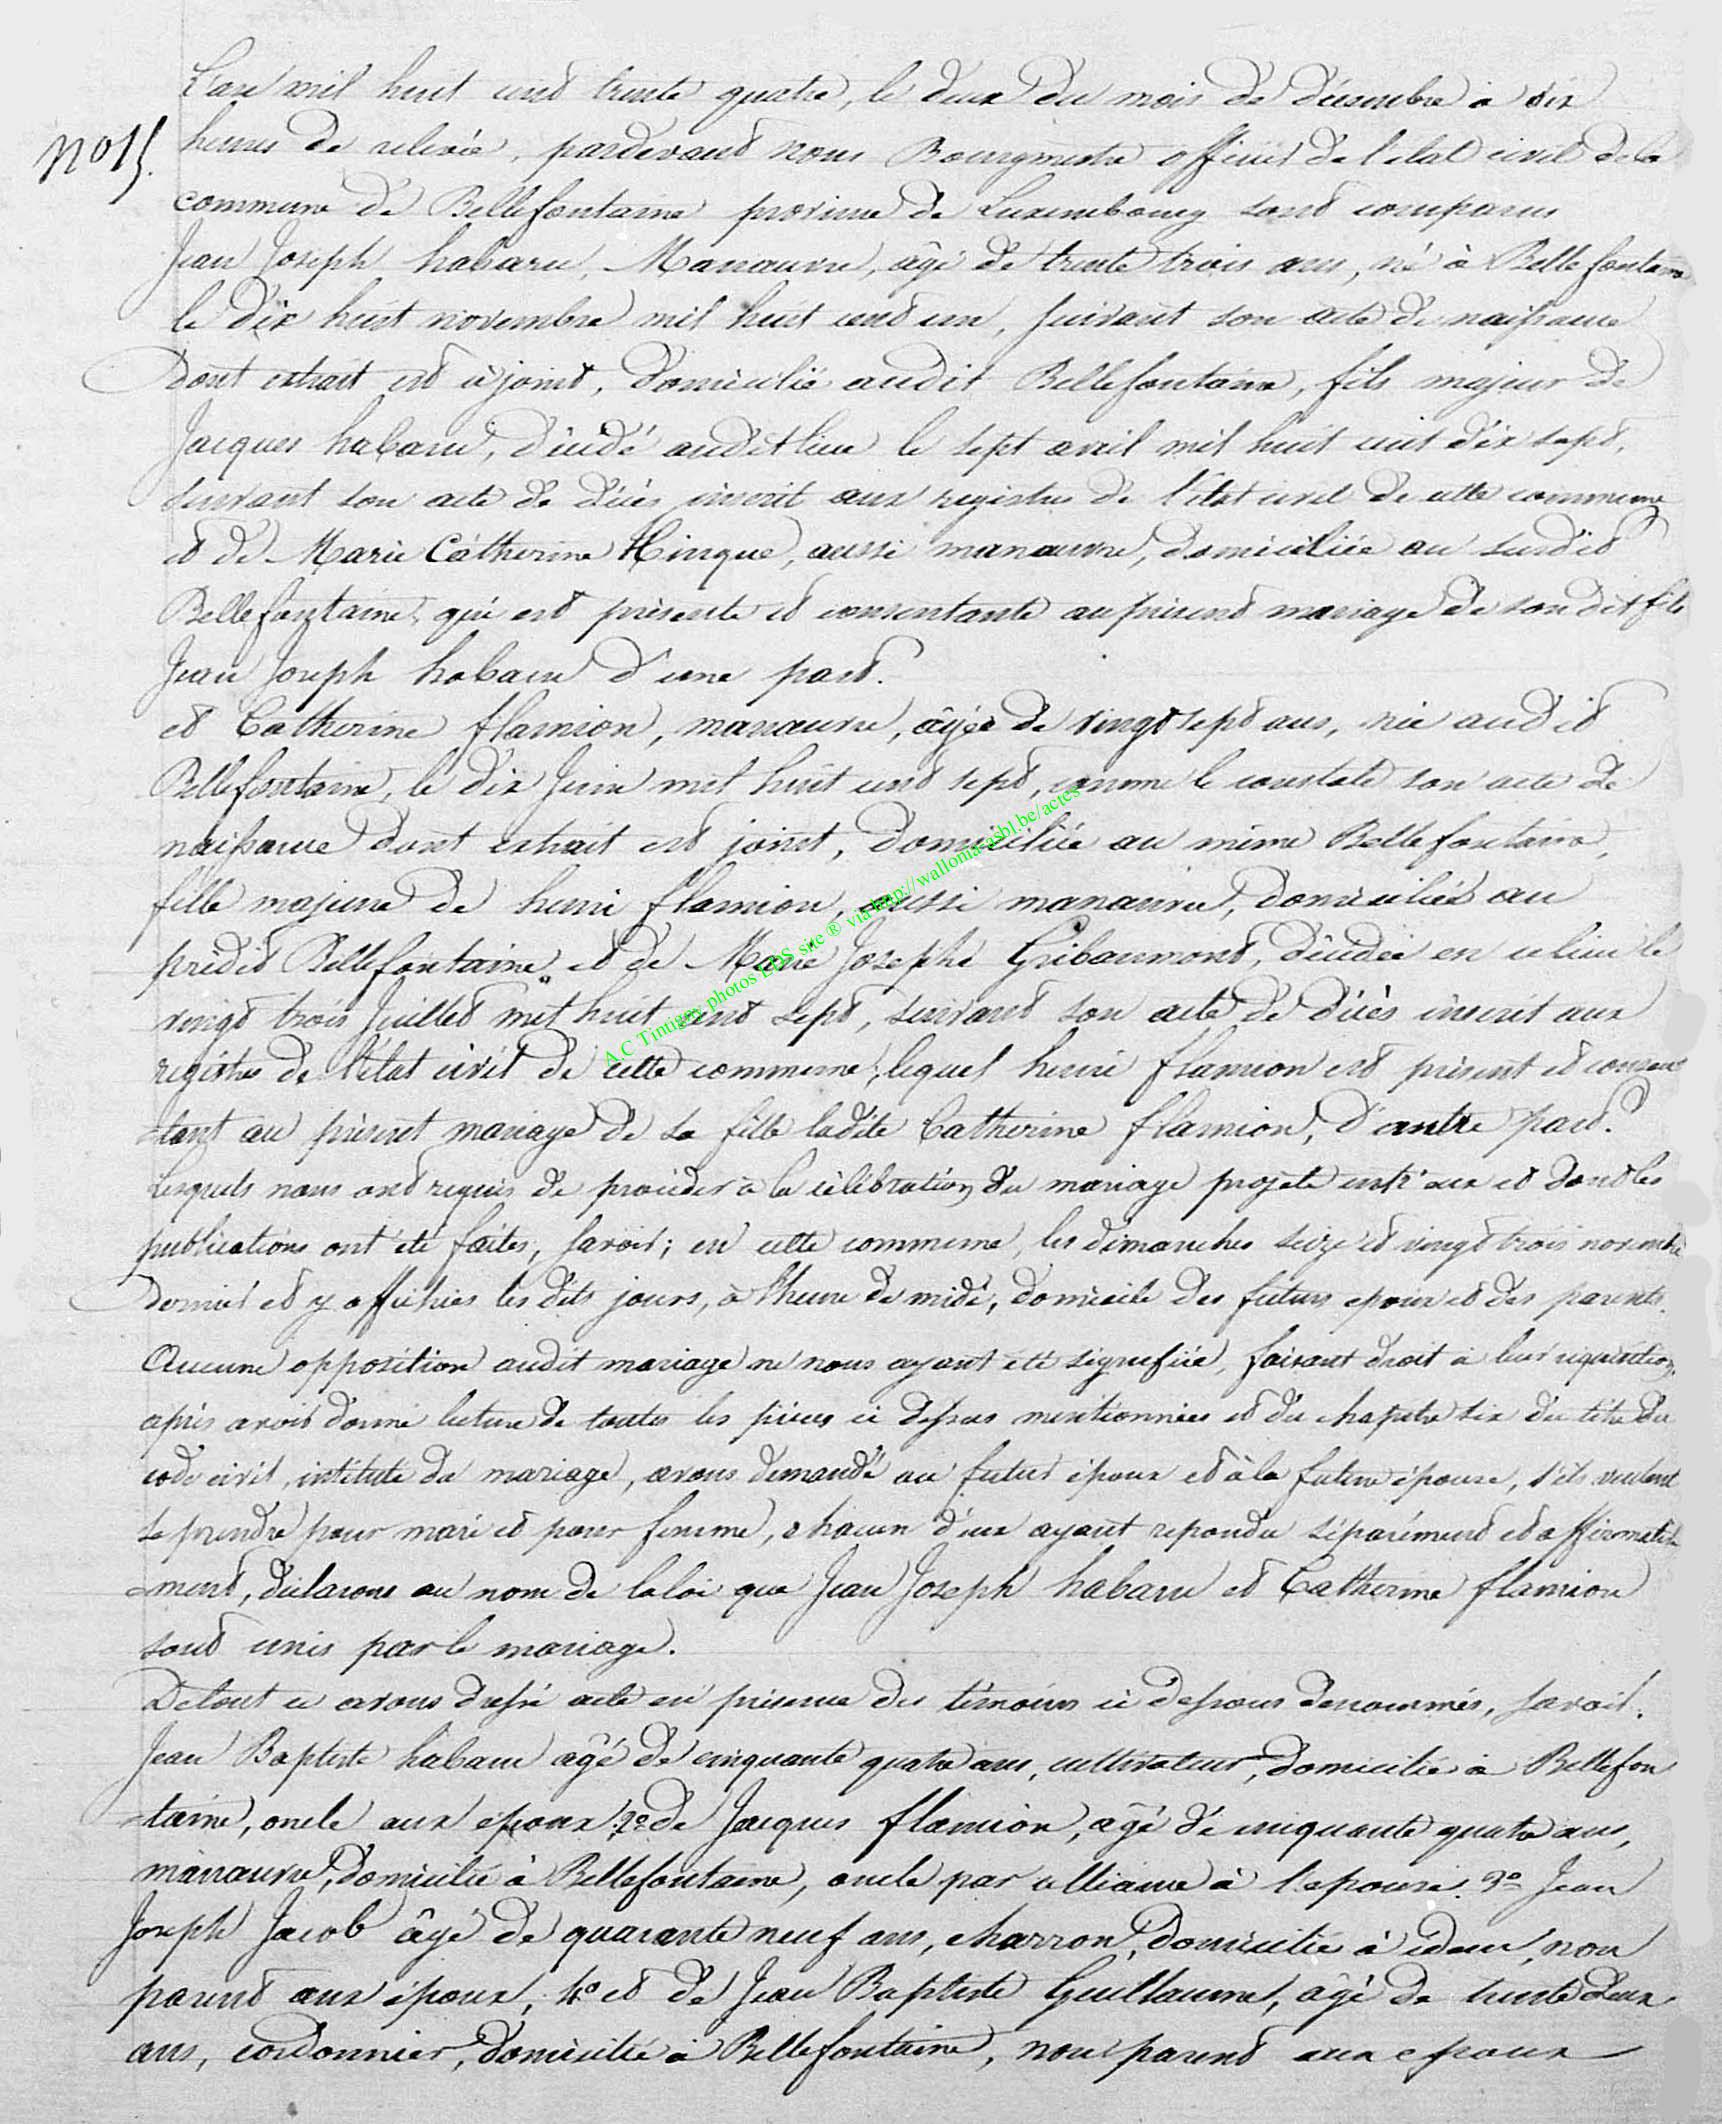 L'an mil huit cent trente quatre, le deux du mois de décembre à six
n° 15.
heures de relevée, pardevant nous Bourgmestre officier de l'état civil de la
commune de Bellefontaine province de Luxembourg sont comparus
Jean Joseph habaru, Manœuvre, âgé de trente trois ans, né à Bellefontaine
le dix huit novembre mil huit cent un, suivant son acte de naissance
dont extrait est ci joint, domicilié audit Bellefontaine, fils majeur de
Jacques habaru, décédé audit lieu le sept avril mil huit cent dix sept,
suivant son acte de décès inscrit aux registres de l'état civil de cette commune
et de Marie Catherine Hinque, aussi manœuvre, domiciliée au susdit
Bellefontaine, qui est présente et consentante au présent mariage de son dit fils
Jean Joseph habaru d'une part.
et Catherine flamion, manœuvre, âgée de vingt sept ans, née audit
Bellefontaine, le dix Juin mil huit cent sept, comme le constate son acte de
naissance dont extrait est joint, domiciliée au même Bellefontaine,
fille majeure de henri flamion, aussi manœuvre, domiciliés au
prédit Bellefontaine et de Marie Josephe Gribaumont, décédée en ce lieu le
vingt trois Juillet mil huit cent sept, suivant son acte de décès inscrit aux
registres de l'état civil de cette commune; lequel henri flamion est présent et consen
-tant au présent mariage de sa fille ladite Catherine flamion, d'autre part.
Lesquels nous ont requis de procéder à la célébration du mariage projeté entr'eux et dont les
publications ont été faites, savoir; en cette commune, les dimanches seize et vingt trois novembre
dernier et y affichées les dits jours, à l'heure de midi, domicile des futurs epoux et des parents.
Aucune opposition audit mariage ne nous ayant été signifiée, faisant droit à leur réquisition,
après avoir donné lecture de toutes les pièces ci dessus mentionnées et du chapitre six du titre du
code civil, intitulé du mariage, avons demandé au futur époux et à la future épouse, s'ils veulent
se prendre pour mari et pour femme, chacun d'eux ayant repondu séparément et affirmative
-ment, déclarons au nom de la loi que Jean Joseph habaru et Catherine flamion
sont unis par le mariage.
De tout ce avons dressé acte en présence des témoins ci dessous denommés, savoir.
Jean Baptiste habaru âgé de cinquante quatre ans, cultivateur, domicilié à Bellefon
-taine, oncle aux epoux, 2° de Jacques flamion, agé de cinquante quatre ans,
manœuvre, domicilié à Bellefontaine, oncle par alliance à l'epouse. 3° Jean
Joseph Jacob âgé de quarante neuf ans, charron, domicilié à idem, non
parent aux époux, 4° et de Jean Baptiste Guillaume, âgé de trente deux
ans, cordonnier, domicilié à Bellefontaine, non parent aux epoux
A.C Tintigny photos LDS site ® via http://wallonia-asbl.be/actes